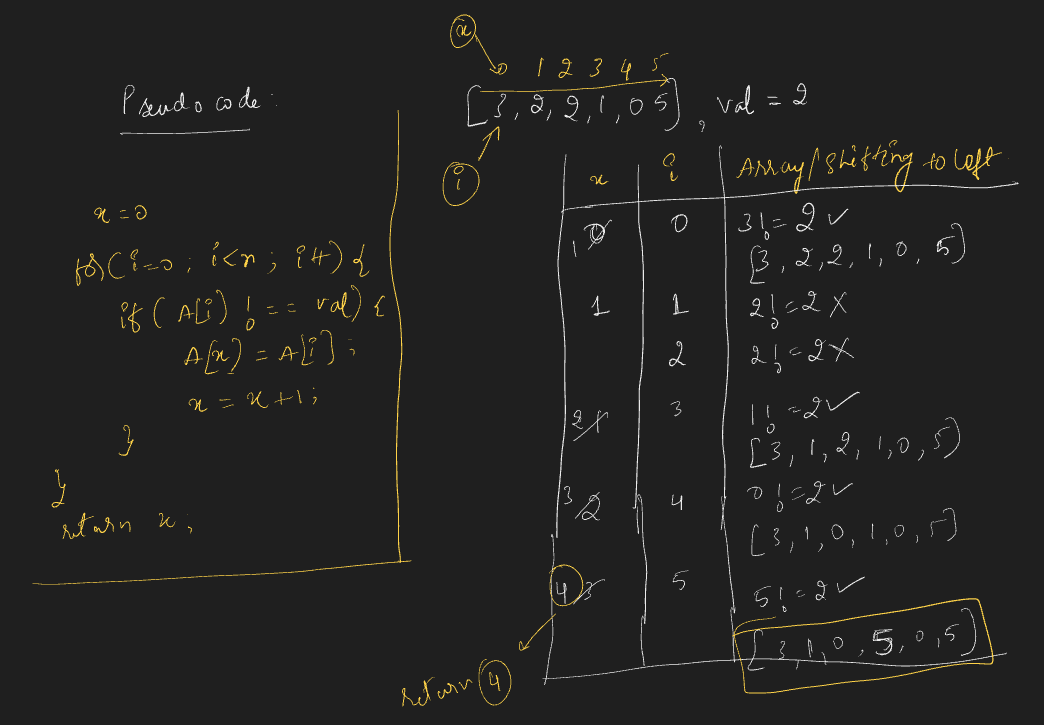 Pseudo code:
x=0
for(i=0; i<n; i++) {
if (A[i] !== val) {
A[x] = A[i];
x = x+1;
}
}
return x;
x
0 1 2 3 4 5
[3, 2, 2, 1, 0 5], val = 2
i
x i Array/Shifting to left
1 0 0 3!=2 ✓
[3, 2, 2, 1, 0, 5]
1 1 2!=2 X
2 2!=2 X
2 1 3 1!=2 ✓
[3, 1, 2, 1, 0, 5]
3 2 4 0!=2 ✓
[3, 1, 0, 1, 0, 5]
4 3 5 5!=2 ✓
[3, 1, 0, 5, 0, 5]
return 4